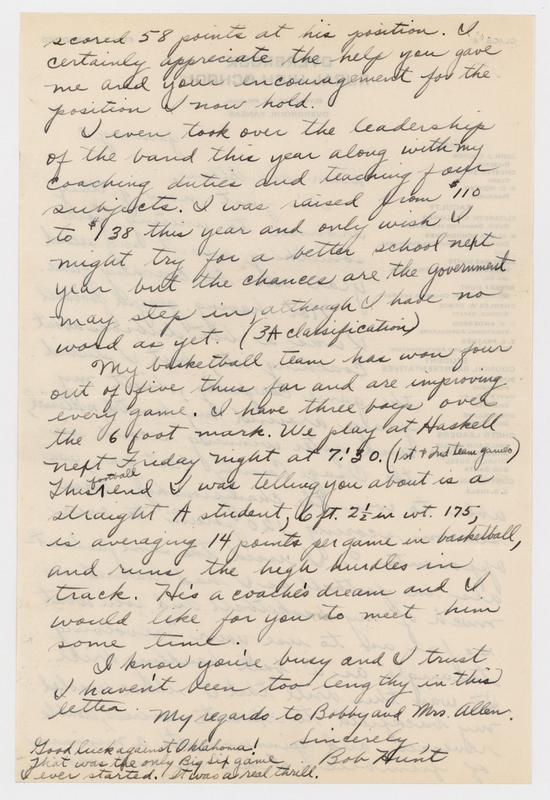 scored 58 points at his position. I
certainly appreciate the help you gave
me and your encouragement for the
position I now hold.
I even took over the leadership
of the band this year along with my
coaching duties and teaching four
subjects. I was raised from $110
to $138 this year and only wish I
might try for a better school next
year but the chances are the government
may step in, although I have no
word as yet. (3A classification)
My basketball team has won four
out of five thus far and are improving
every game. I have three boys over
the 6 foot mark. We play at Haskell
next Friday night at 7:30. (1st & 2nd team games)
This football end I was telling you about is a
straight A student, 6 ft. 2½ in wt. 175,
is averaging 14 points per game in basketball,
and runs the high hurdles in
track. He's a coache's dream and I
would like for you to meet him
some time.
I know you're busy and I trust
I haven't been too lengthy in this
letter. My regards to Bobby and Mrs. Allen.
Sincerely
Bob Hunt
Good luck against Oklahoma!
That was the only Big Six game
I ever started. It was a real thrill.